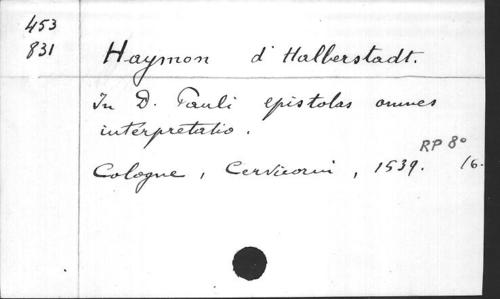 453
831
Haymon d'Halberstadt.
In D. Pauli epistolas omnes
interpretatio.
RP 8°
Cologne, Cervicorni, 1539. 16.